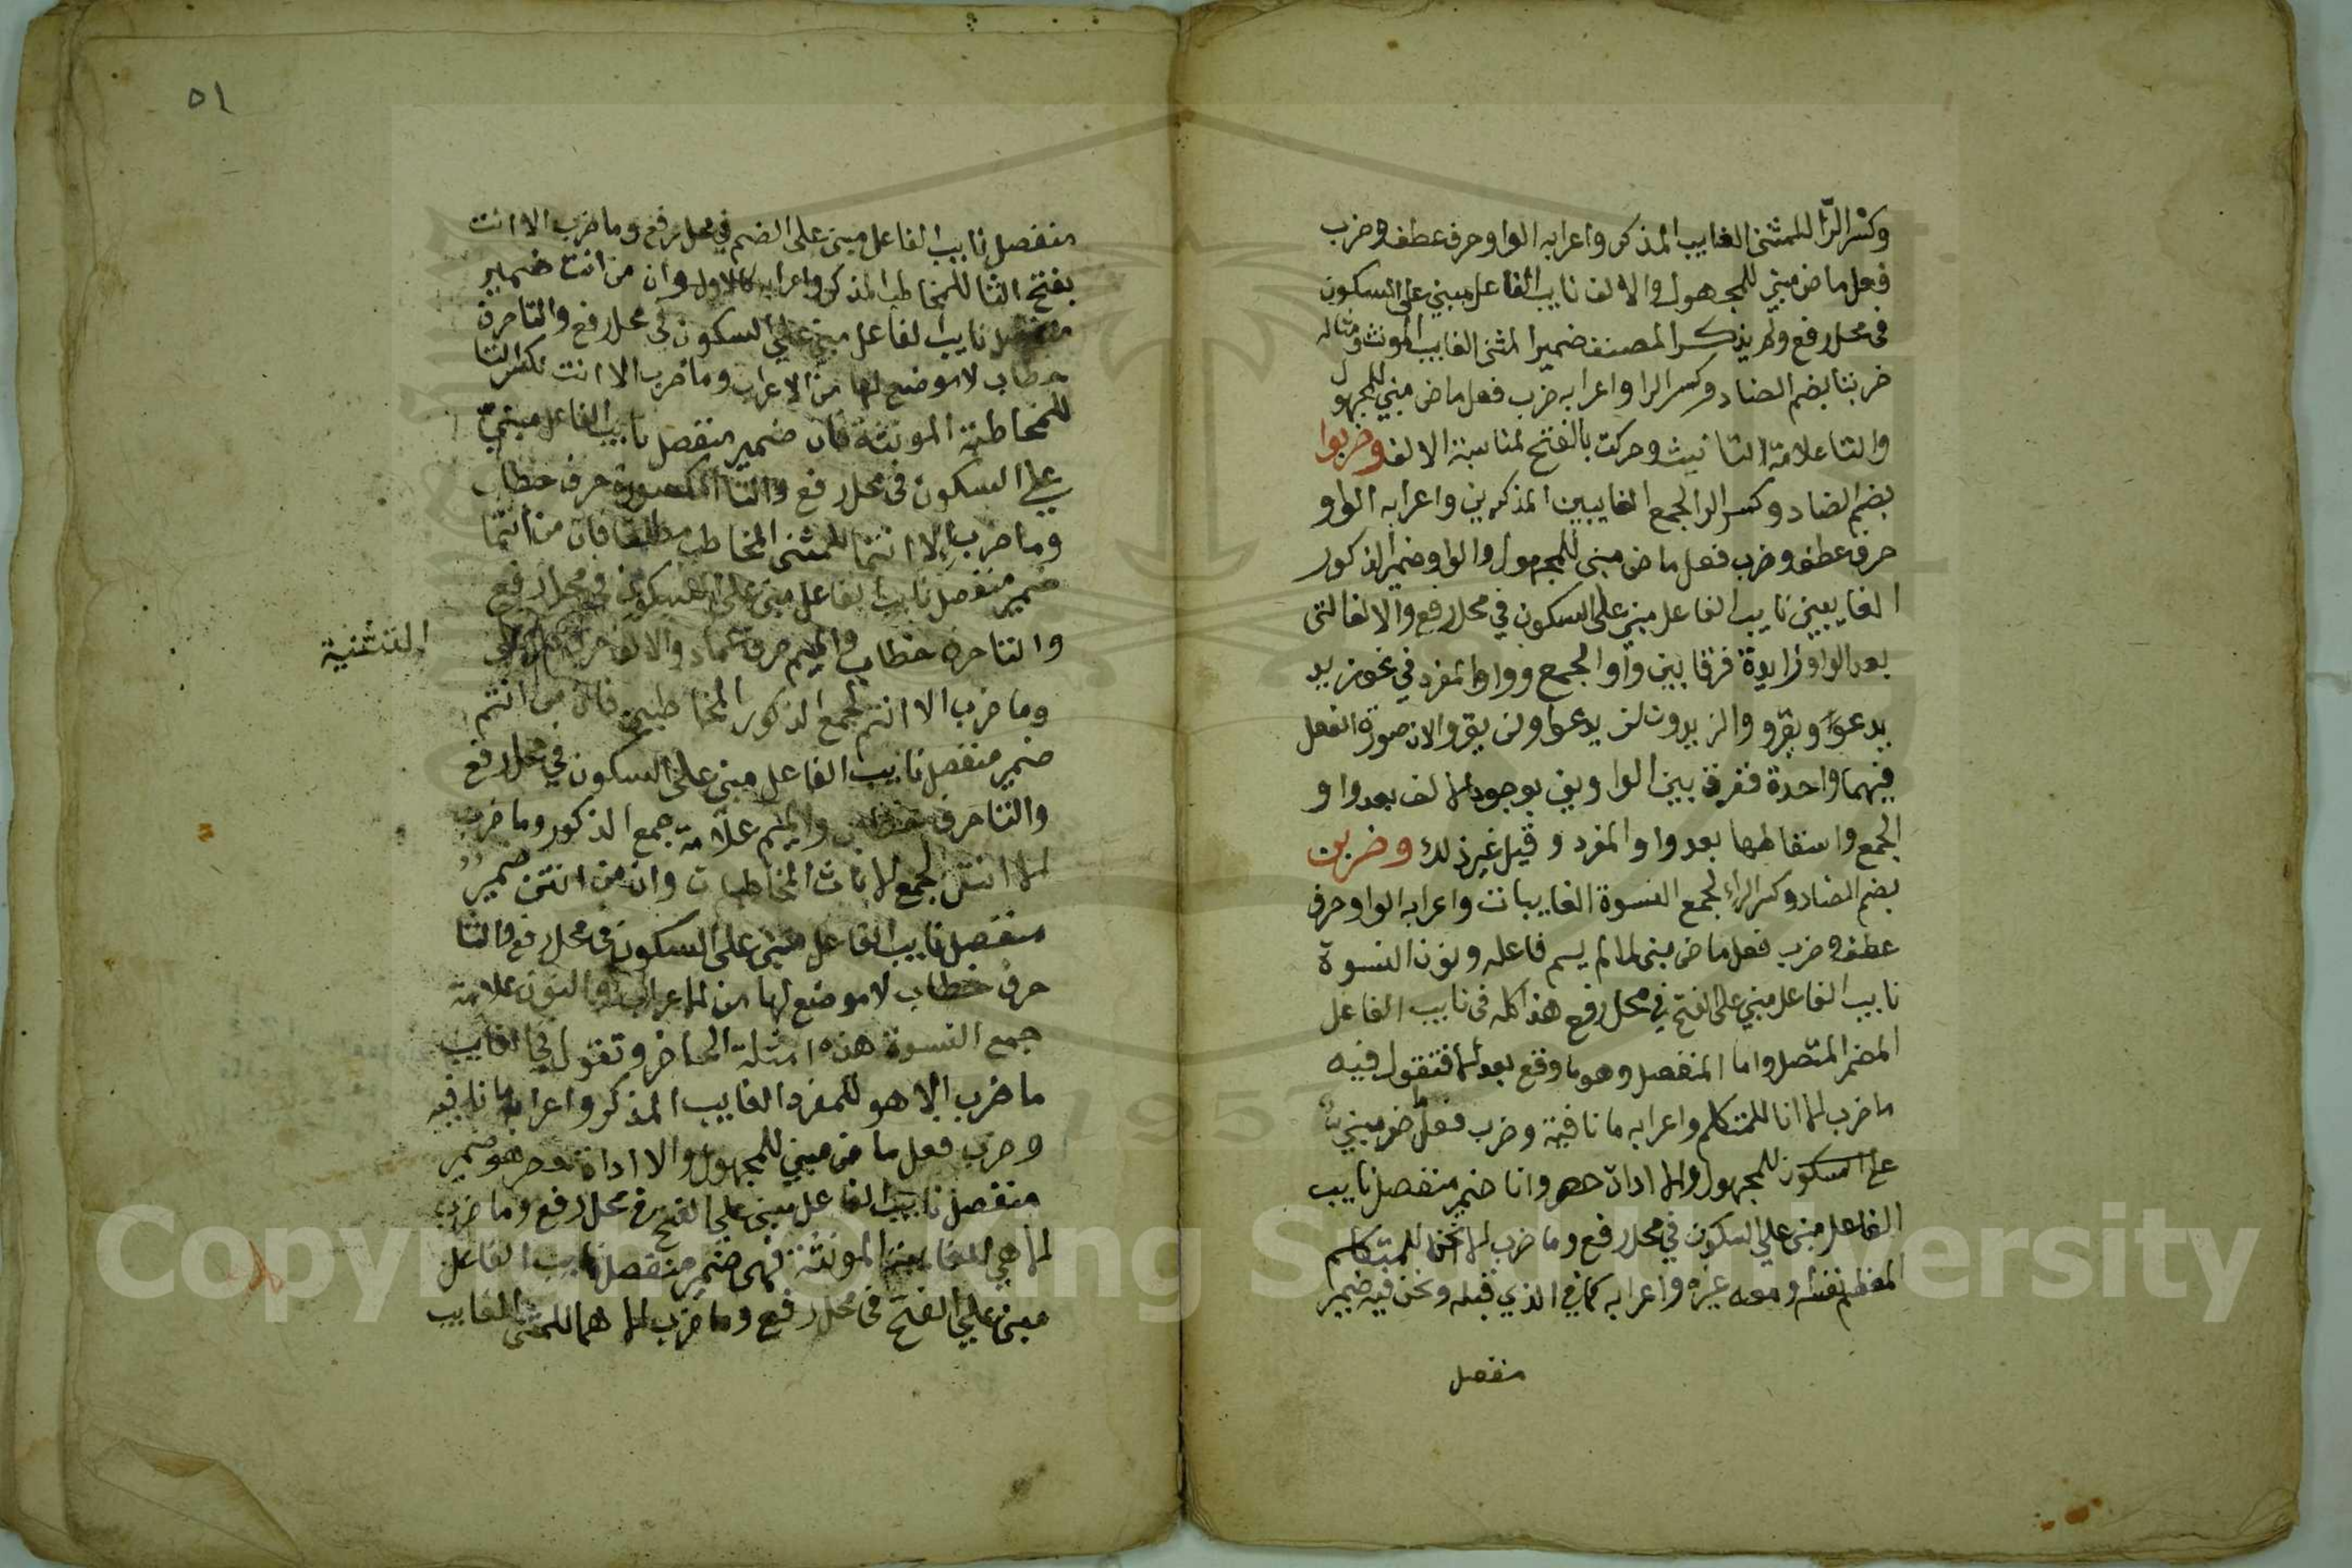 وكسر الرّا للمثنى الغايب المذكر واعرابه الواو حرف عطف وضرب
فعل ماض مبني للمجهول والالف نايب الفاعل مبني على السكون
في محل رفع ولم يذكر المصنف ضمير المثنى الغايب المونث ومثاله
ضربتا بضم الضاد وكسر الرا واعرابه ضرب فعل ماض مبني للمجهول
والتا علامة التانيث وحركت بالفتح لمناسبة الالف وضربوا
بضم الضاد وكسر الرا لجمع الغايبين المذكرين واعرابه الواو
حرف عطف وضرب فعل ماض مبني للمجهول والواو ضمير الذكور
الغايبين نايب الفاعل مبني على السكون في محل رفع والالف التي
بعد الواو زايدة فرقا بين واو الجمع وواو المفرد في نحو زيد
يدعو ويقرو والزيدون لن يدعوا ولن يقروا لان صورة الفعل
فيهما واحدة ففرق بين الواوين بوجود الالف بعد واو
الجمع واسقاطها بعد واو المفرد وقيل غير ذلك وضربن
بضم الضاد وكسر الراء لجمع النسوة الغايبات واعرابه الواو حرف
عطف وضرب فعل ماض مبني لما لم يسم فاعله ونون النسوة
نايب الفاعل مبني على الفتح في محل رفع هذا كله في نايب الفاعل
المضمر المتصل واما المنفصل وهو ما وقع بعد الا فتقول فيه
ما ضرب الا انا للمتكلم واعرابه ما نافية وضرب فعل ماض مبني
على السكون للمجهول والا اداة حصر وانا ضمير منفصل نايب
الفاعل مبني على السكون في محل رفع وما ضرب الا نحن للمتكلم
المعظم نفسه ومعه غيره واعرابه كما في الذي قبله ونحن فيه ضمير
منفصل
٥١
منفصل نايب الفاعل مبني على الضم في محل رفع وما ضرب الا انت
بفتح التا للمخاطب المذكر واعرابه كالاول وان من انت ضمير
منفصل نايب الفاعل مبني على السكون في محل رفع والتا حرف
خطاب لا موضع لها من الاعراب وما ضرب الا انت بكسر التا
للمخاطبة المونثة فان ضمير منفصل نايب الفاعل مبني
على السكون في محل رفع والتا المكسورة حرف خطاب
وما ضرب الا انتما للمثنى المخاطب مطلقا فان من انتما
ضمير منفصل نايب الفاعل مبني على السكون في محل رفع
والتا حرف خطاب والميم حرف عماد والالف حرف
التثنية
وما ضرب الا انتم لجمع الذكور المخاطبين فان من انتم
ضمير منفصل نايب الفاعل مبني على السكون في محل رفع
والتا حرف خطاب والميم علامة جمع الذكور وما ضرب
الا انتن لجمع الاناث المخاطبات وان من انتن ضمير
منفصل نايب الفاعل مبني على السكون في محل رفع والتا
حرف خطاب لا موضع لها من الاعراب والنون علامة
جمع النسوة هذه امثلة الحاضر وتقول في الغايب
ما ضرب الا هو للمفرد الغايب المذكر واعرابه ما نافية
وضرب فعل ماض مبني للمجهول والا اداة حصر هو ضمير
منفصل نايب الفاعل مبني على الفتح في محل رفع وما ضرب
الا هي للغايبة المونثة فهي ضمير منفصل نايب الفاعل
مبني على الفتح في محل رفع وما ضرب الا هما للمثنى الغايب
Copyright © King Saud University
1957